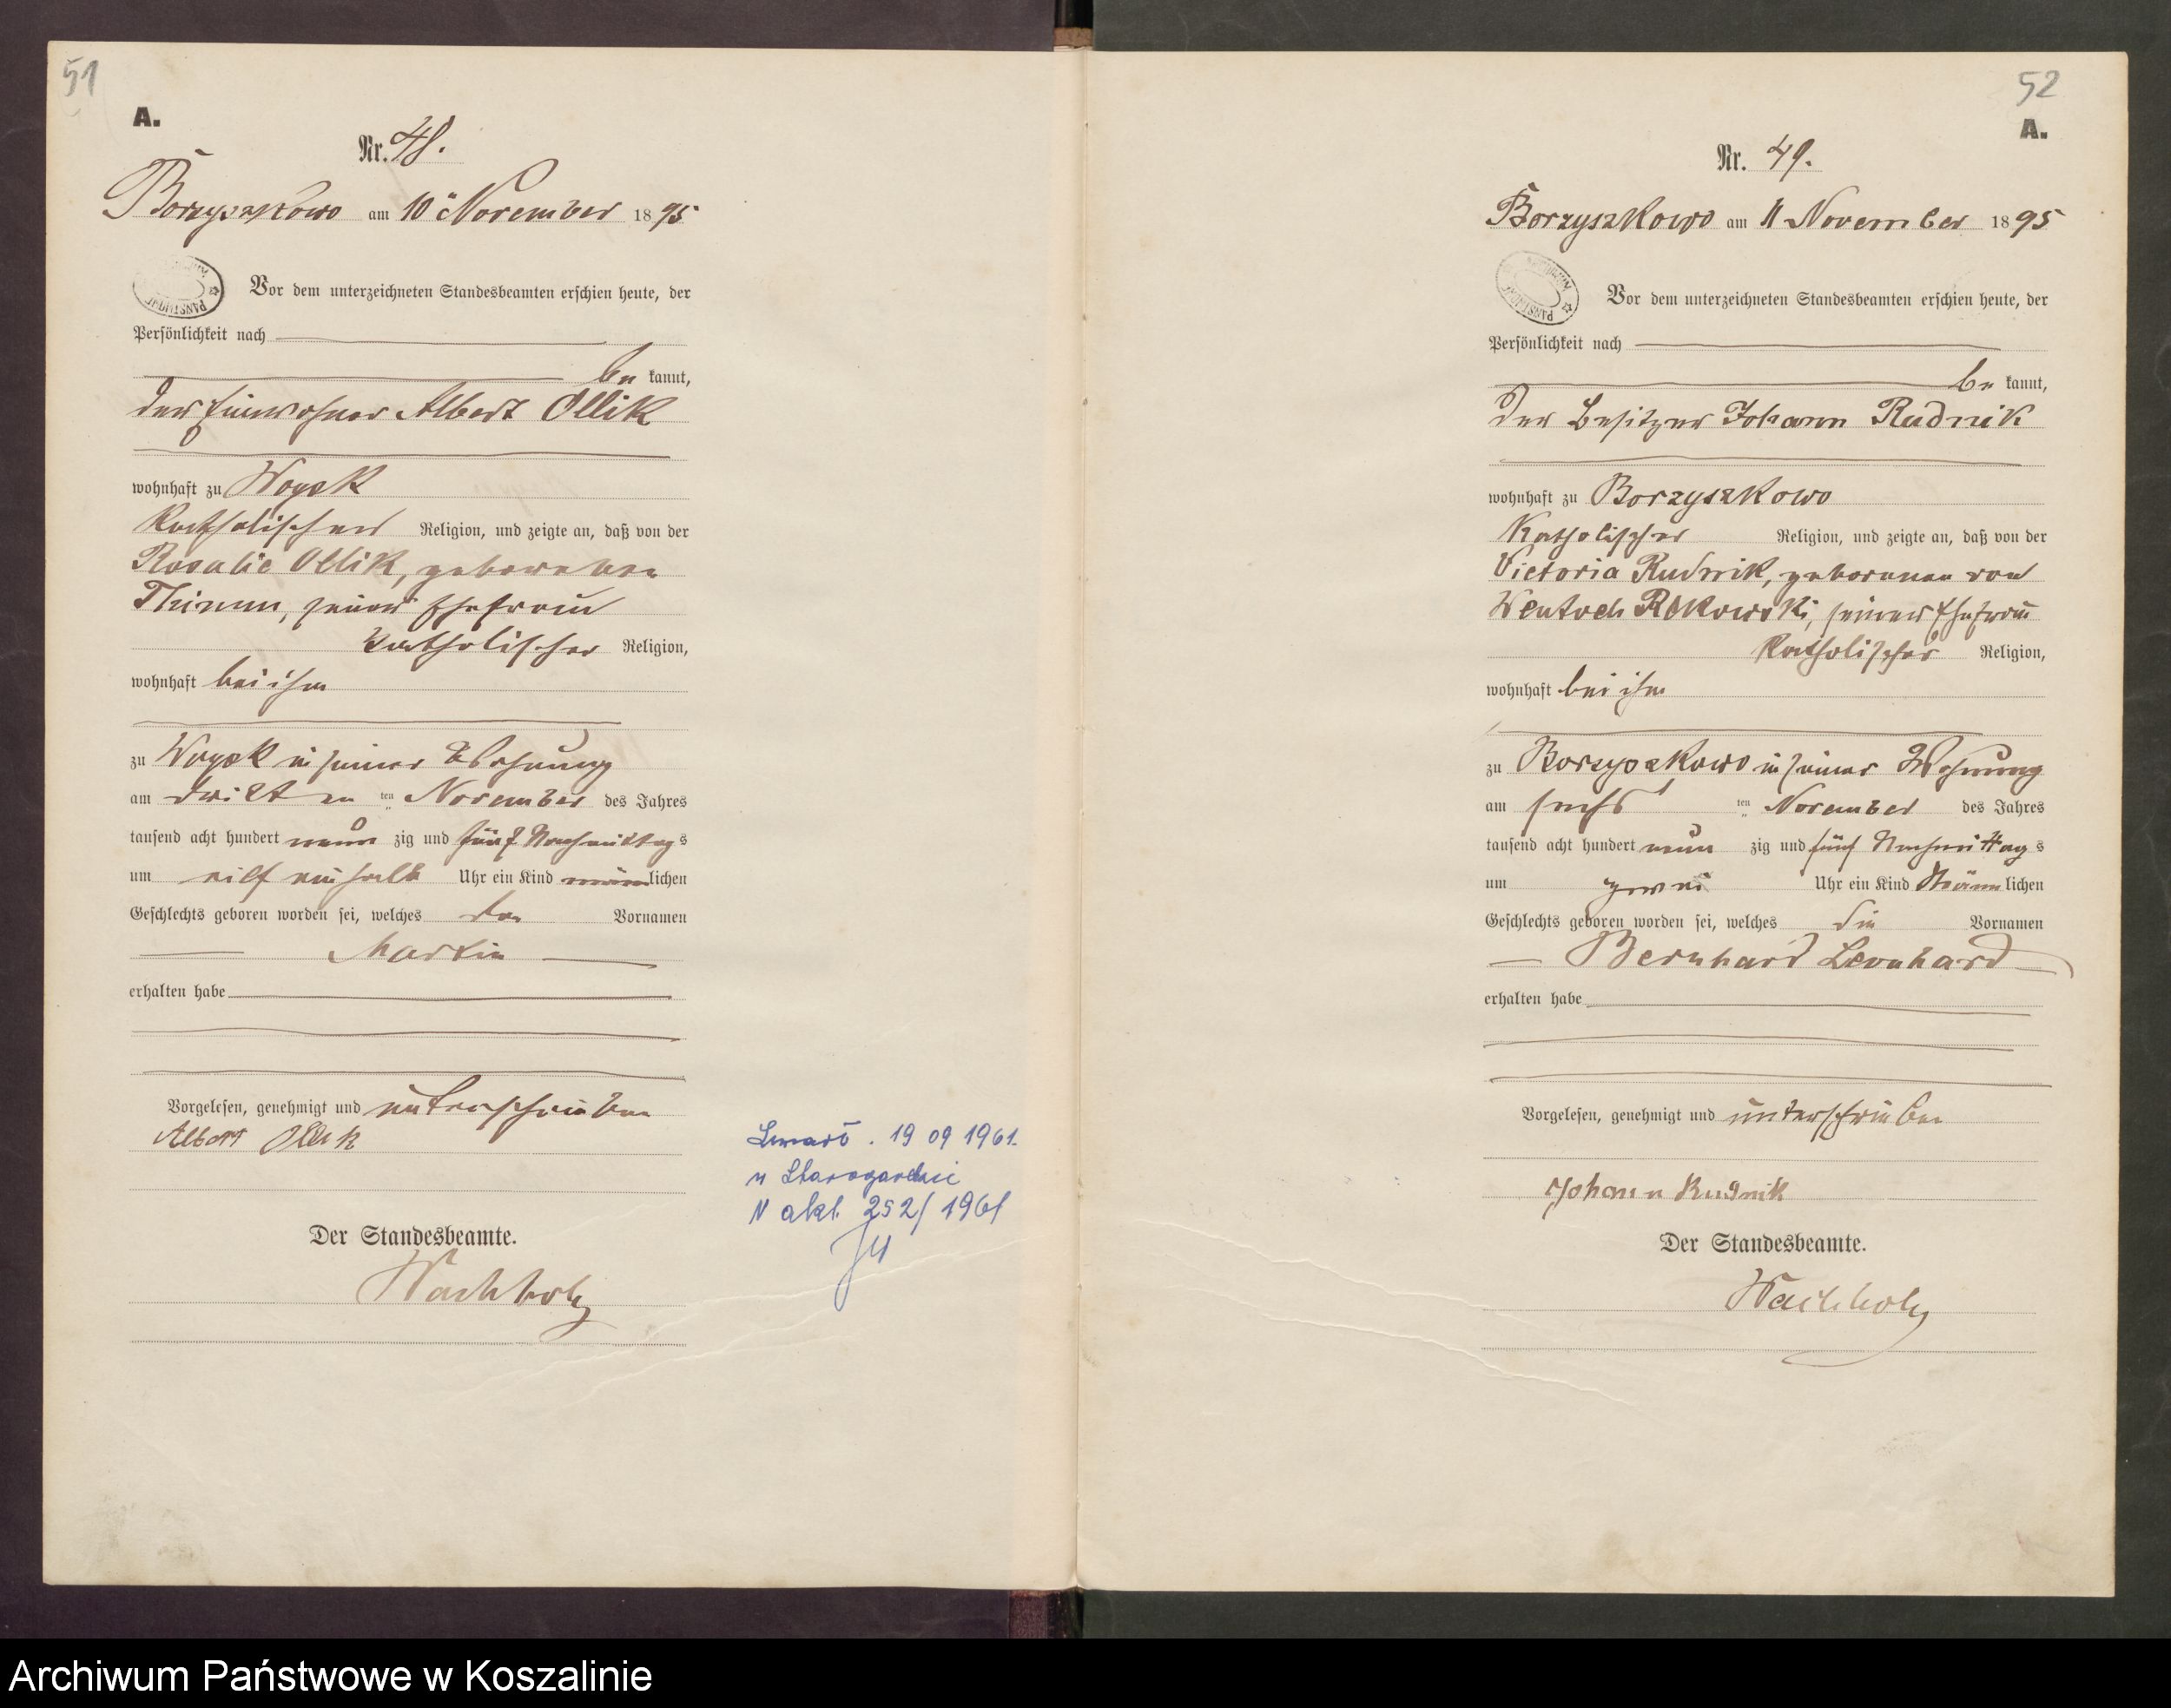 51
A.
Nr. 48.
Borzyszkowo am 10 November 1895
Vor dem unterzeichneten Standesbeamten erschien heute, der
Persönlichkeit nach
be kannt,
der Einwohner Albert Ollik
wohnhaft zu
katholischer Religion, und zeigte an, daß von der
Rosalie Ollik, geborenen
seiner Ehefrau
katholischer Religion,
wohnhaft bei ihm
zu in seiner Wohnung
am dritten ten November des Jahres
tausend acht hundert neun zig und fünf Nachmittags
um eilf einhalb Uhr ein Kind männlichen
Geschlechts geboren worden sei, welches den Vornamen
Martin
erhalten habe
Vorgelesen, genehmigt und unterschrieben
Albert Ollik
Der Standesbeamte.
Wachholz
Zmarł. 19 09 1961.
w Starogardzie
N akt. 252/1961
52
A.
Nr. 49.
Borzyszkowo am 11 November 1895
Vor dem unterzeichneten Standesbeamten erschien heute, der
Persönlichkeit nach
be kannt,
Der Besitzer Johann Rudnik
wohnhaft zu Borzyszkowo
katholischer Religion, und zeigte an, daß von der
Victoria Rudnik, geborenen von
seiner Ehefrau
katholischer Religion,
wohnhaft bei ihm
zu Borzyszkowo in seiner Wohnung
am sechs ten November des Jahres
tausend acht hundert neun zig und fünf Nachmittags
um zwei Uhr ein Kind männlichen
Geschlechts geboren worden sei, welches die Vornamen
Bernhard Leonhard
erhalten habe
Vorgelesen, genehmigt und unterschrieben
Johann Rudnik
Der Standesbeamte.
Wachholz
Archiwum Państwowe w Koszalinie